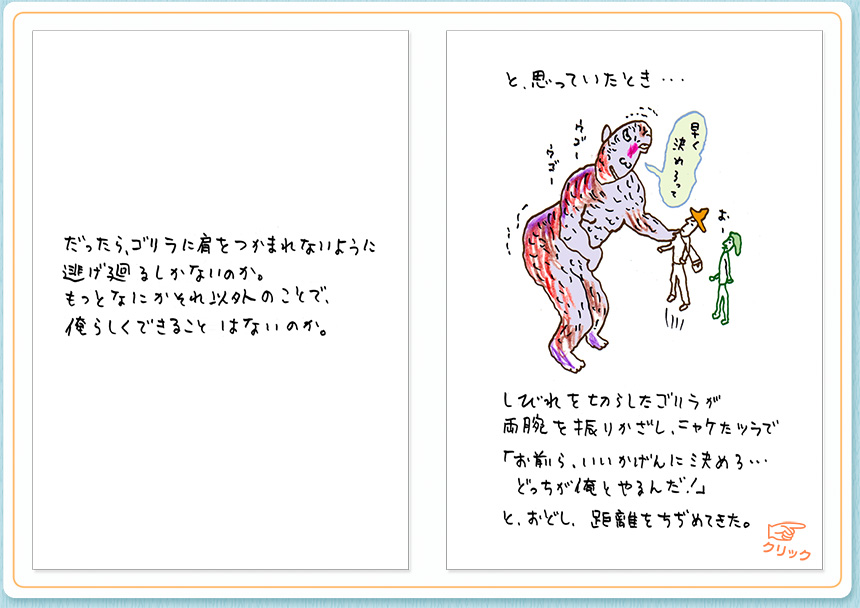 だったら、ゴリラに肩をつかまれないように
逃げ廻るしかないのか。
もっとなにかそれ以外のことで、
俺らしくできることはないのか。
と、思っていたとき・・・
ウゴー
ウゴー
早く
決めろって
おー
しびれを切らしたゴリラが
両腕を振りかざし、ニャケたツラで
「お前ら、いいかげんに決めろ・・・
どっちが俺とやるんだ!」
と、おどし、距離をちぢめてきた。
クリック